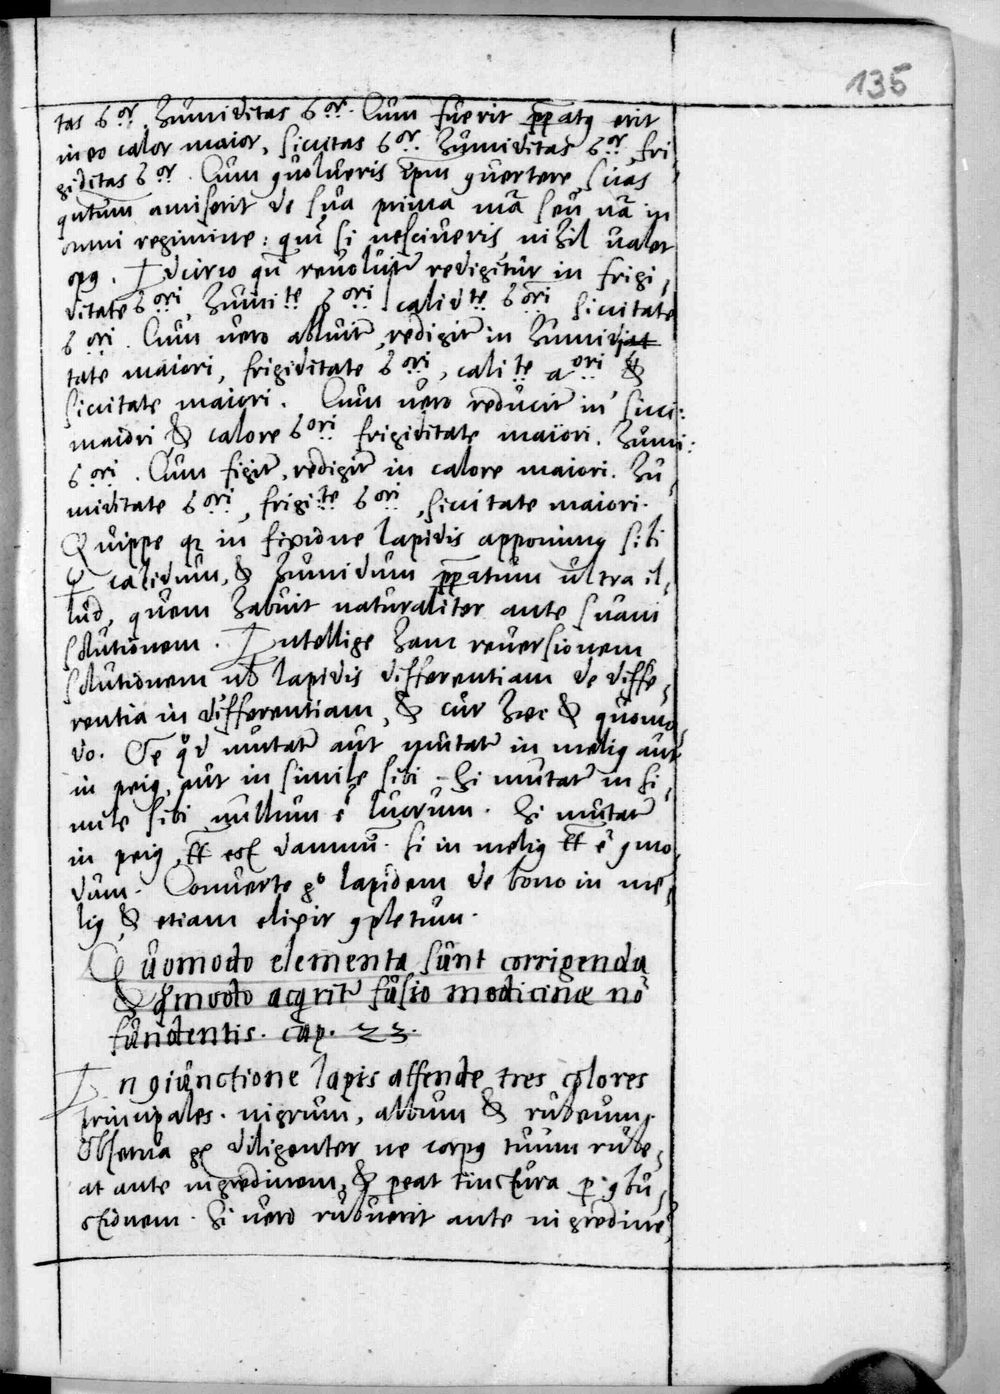 135
tas 6or. humiditas 6or. Cum fuerit ppatus erit
in eo calor maior, siccitas 6or. humiditas 6or, fri
giditas 6or. Cum quolueris ipm quertere, suas
qutum amiserit de sua prima mã seu nã in
omni regimine: quĩ si nesciueris nihil valet
opus. Idcirco qũ reuoluitr redigitur in frigi,
ditate 6ori, humite 6ori calidte 6ori siccitate
6ori. Cum vero abluitr, redigitr in humid
tate maiori, frigiditate 6ori, calite aori &
siccitate maiori. Cum vero reducitr in sicci:
maiori & calore 6ori frigiditate maiori. humi:
6ori. Cum figitr, redigitr in calore maiori. hu,
miditate 6ori, frigite 6ori, siccitate maiori.
Quippe qr in fixione lapidis apponimus sibi
☿ calidum, & humidum ppatum ultra il,
lud, quem habuit naturaliter ante suam
solutionem. Intellige hanc reuersionem
solutionem lapidis differentiam de diffe,
rentia in differentiam, & cur hæc & quomo
do. Oẽ qd mutatr aut mutatr in melius aut
in peius, aut in simile sibi. Si mutatr in si,
mile sibi nullum ẽ lucrum. Si mutatr
in peius, damnũ. Si in melius ẽ
dum. Conuerte go lapidem de bono in me,
lius, & etiam elixir qpletum.
Quomodo elementa sunt corrigenda
& qmodo acqritr fusio medicinæ nõ
fundentis. cap. 23.
In qiunctione lapis ascende tres colores
principales. nigrum, album & rubeum.
Obserua diligenter ne corpus tuum rube,
at ante nigredinem, & pereat tinctura p qbu,
stionem. Si vero rubuerit ante nigredinẽ,